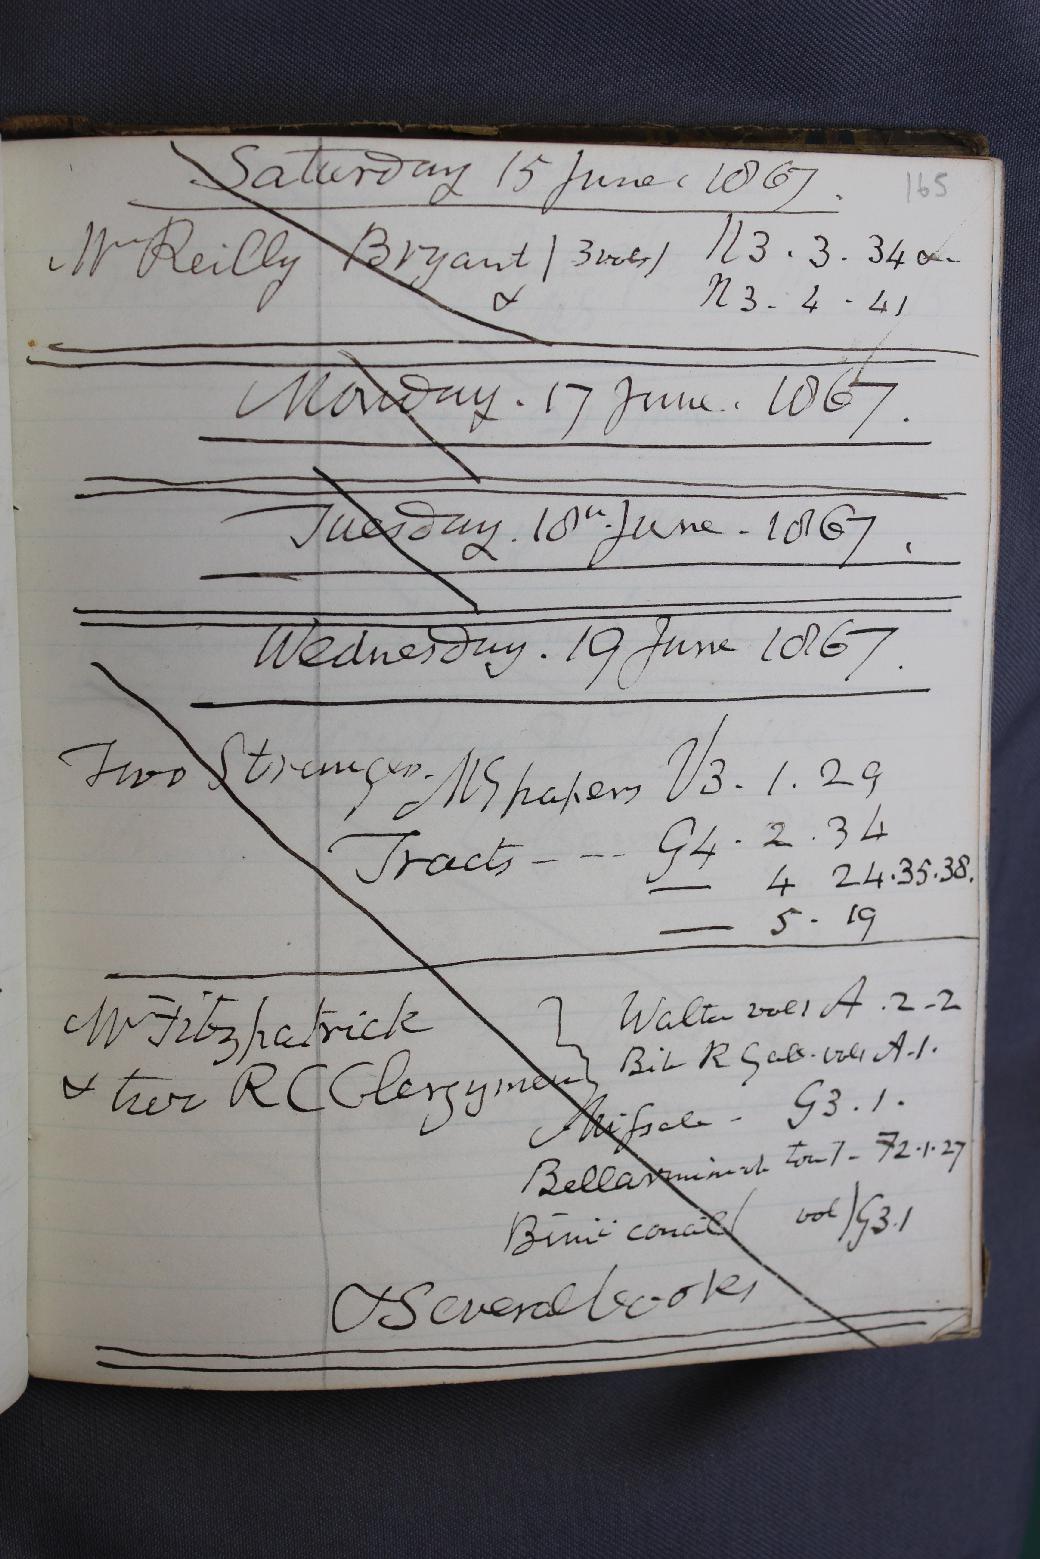 165
Saturday 15 June. 1867.
Mr Reilly Bryant (3 vols) N3. 3. 34 &
& N3. 4. 41
Monday. 17 June. 1867.
Tuesday. 18th June. 1867.
Wednesday. 19 June 1867.
Two Strangers. MS papers V3. 1. 29
Tracts - - - G4. 2. 34
— 4 24.35.38.
— 5. 19
Mr Fitzpatrick Walton vols A. 2-2
& two R C Clergymen Bib R vols A.1.
Missale - G3. 1.
Bellarmini F2.1.27
Binii concil ( vol) G3.1
& Several books